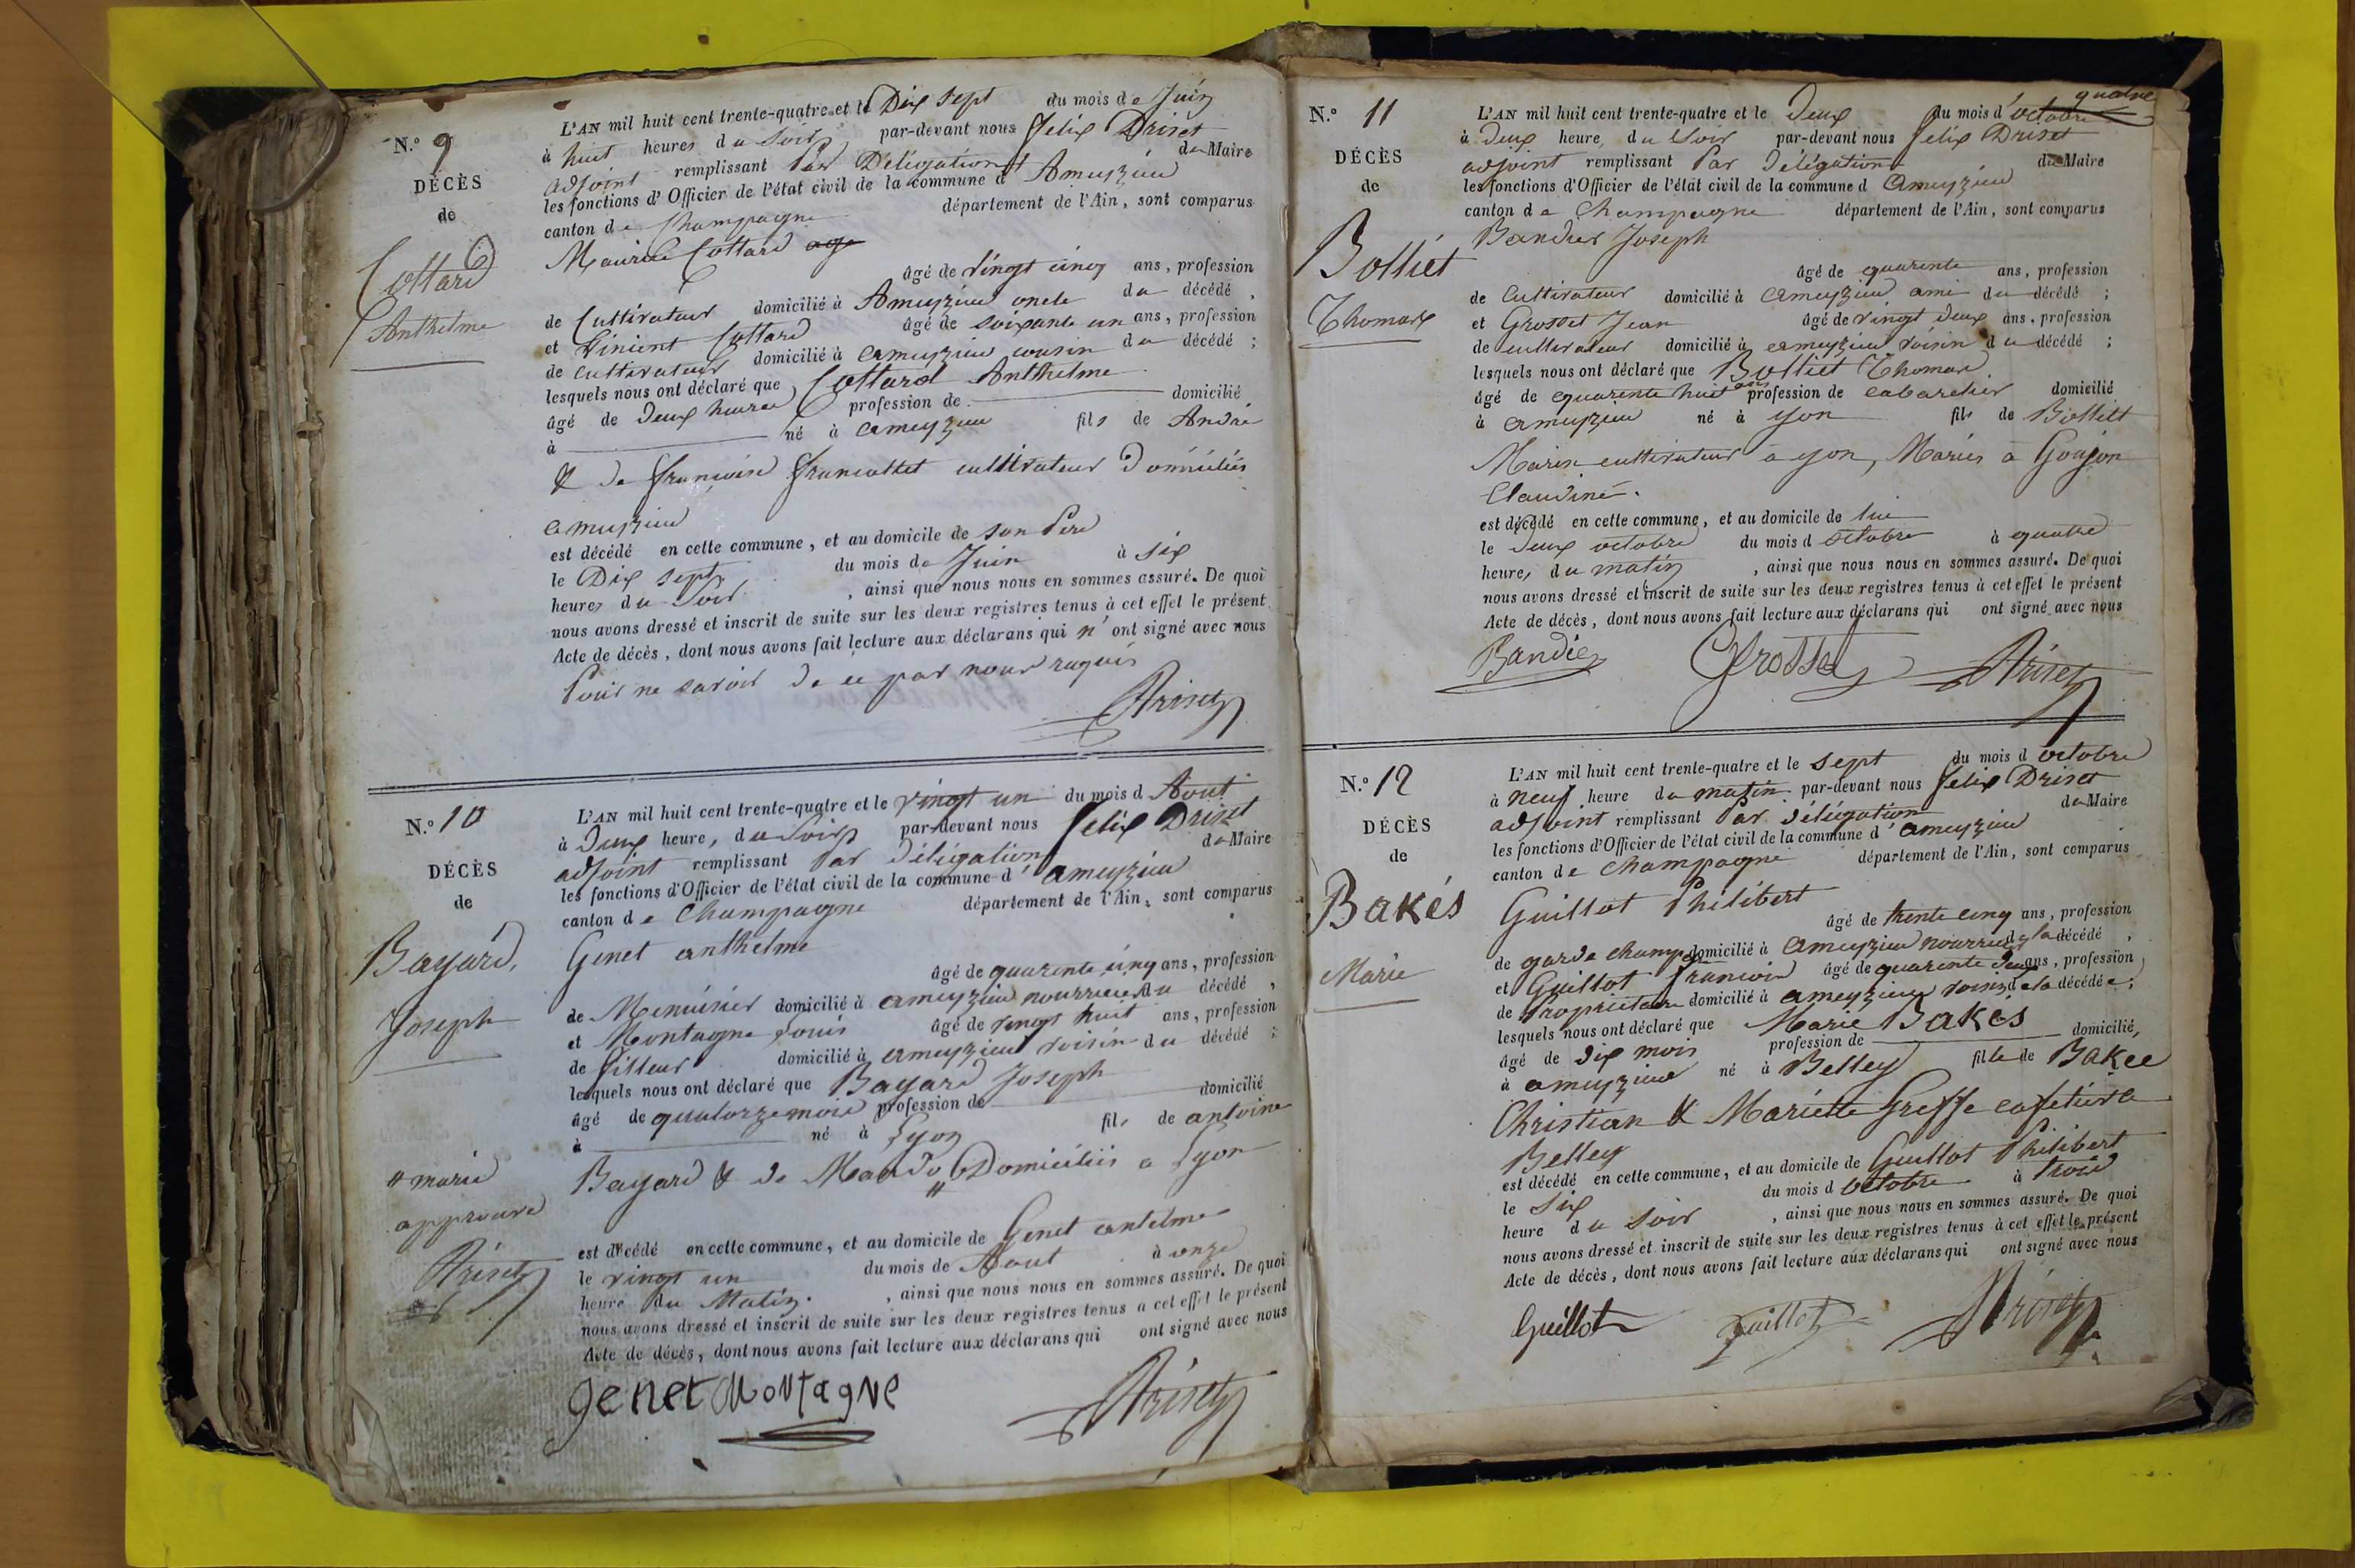 N.° 9
DÉCÈS
de
Cottard
Anthelme
L'AN mil huit cent trente-quatre et le Dix sept du mois de Juin
à huit heures du Soir par-devant nous Felix Driset
adjoint remplissant Par Délégation du Maire
les fonctions d'Officier de l'état civil de la commune d'Ameyzieu
canton de Champagne département de l'Ain, sont comparus
Maurice Cottard age
âgé de vingt cinq ans, profession
de Cultivateur domicilié à Ameyzieu oncle du décédé,
et Vincent Cottard âgé de soixante un ans, profession
de cultivateur domicilié à ameyzieu cousin du décédé;
lesquels nous ont déclaré que Cottard Anthelme
âgé de deux heures profession de domicilié
à né à ameyzieu fils de André
& de francoise francottet cultivateur Domiciliés
ameyzieu
est décédé en cette commune, et au domicile de son Père
le Dix sept du mois de Juin à six
heures du Soir, ainsi que nous nous en sommes assuré. De quoi
nous avons dressé et inscrit de suite sur les deux registres tenus à cet effet le présent
Acte de décès, dont nous avons fait lecture aux déclarans qui n'ont signé avec nous
Pour ne savoir de ce par nous requis
Driset
N.° 10
DÉCÈS
de
Bayard,
Joseph
# marie
approuvé
Driset
L'AN mil huit cent trente-quatre et le vingt un du mois d Aout
à Deux heure, du Soir par-devant nous Felix Driset
adjoint remplissant Par Délégation du Maire
les fonctions d'Officier de l'état civil de la commune d'ameyzieu
canton de Champagne département de l'Ain, sont comparus
Genet anthelme
âgé de quarente cinq ans, profession
de Menuisier domicilié à ameyzieu nourricier du décédé,
et Montagne Louis âgé de vingt huit ans, profession
de Tilleur domicilié à ameyzieu voisin du décédé;
lesquels nous ont déclaré que Bayard Joseph
âgé de quatorze mois profession de domicilié
à né à Lyon fils de antoine
Bayard & de # Domiciliés a Lyon
est décédé en cette commune, et au domicile de Genet antelme
le vingt un du mois de Aout à onze
heure du Matin., ainsi que nous nous en sommes assuré. De quoi
nous avons dressé et inscrit de suite sur les deux registres tenus à cet effet le présent
Acte de décès, dont nous avons fait lecture aux déclarans qui ont signé avec nous
genet Montagne Driset
N.° 11
DÉCÈS
de
Bolliet
Thomas
quatre
L'AN mil huit cent trente-quatre et le Deux du mois d'octobre
à Deux heure, du Soir par-devant nous Felix Driset
adjoint remplissant Par Délégation du Maire
les fonctions d'Officier de l'état civil de la commune d ameyzieu
canton de Champagne département de l'Ain, sont comparus
Bandier Joseph
âgé de quarente ans, profession
de Cultivateur domicilié à ameyzieu ami du décédé;
et Grosset Jean âgé de vingt deux ans, profession
de cultivateur domicilié à ameyzieu voisin du décédé;
lesquels nous ont déclaré que Bolliet Thomas
âgé de quarente huit ans profession de cabaretier domicilié
à ameyzieu né à yon fils de Bolliet
Marin cultivateur a yon, Mariés a Goujon
Claudine.
est décédé en cette commune, et au domicile de lui
le deux octobre du mois d octobre à quatre
heures du matin, ainsi que nous nous en sommes assuré. De quoi
nous avons dressé et inscrit de suite sur les deux registres tenus à cet effet le présent
Acte de décès, dont nous avons fait lecture aux déclarans qui ont signé avec nous
Bandier Grosset Driset
N.° 12
DÉCÈS
de
Bakés
Marie
L'AN mil huit cent trente-quatre et le sept du mois d octobre
à neuf heure du matin par-devant nous Felix Driset
adjoint remplissant Par délégation du Maire
les fonctions d'Officier de l'état civil de la commune d'ameyzieu
canton de Champagne département de l'Ain, sont comparus
Guillot Philibert
âgé de trente cinq ans, profession
de garde champ domicilié à Ameyzieu de la décédé,
et Guillot francois âgé de quarente deux ans, profession
de Propriétaire domicilié à ameyzieu voisin de la décédée;
lesquels nous ont déclaré que Marie Bakés
âgé de dix mois profession de domicilié,
à ameyzieu né à Belley fille de Bakee
Christian & Mariette Greffe cafetier a
Belley
est décédé en cette commune, et au domicile de Guillot Philibert
le six du mois d octobre à trois
heure du soir, ainsi que nous nous en sommes assuré. De quoi
nous avons dressé et inscrit de suite sur les deux registres tenus à cet effet le présent
Acte de décès, dont nous avons fait lecture aux déclarans qui ont signé avec nous
Guillot guillot Driset